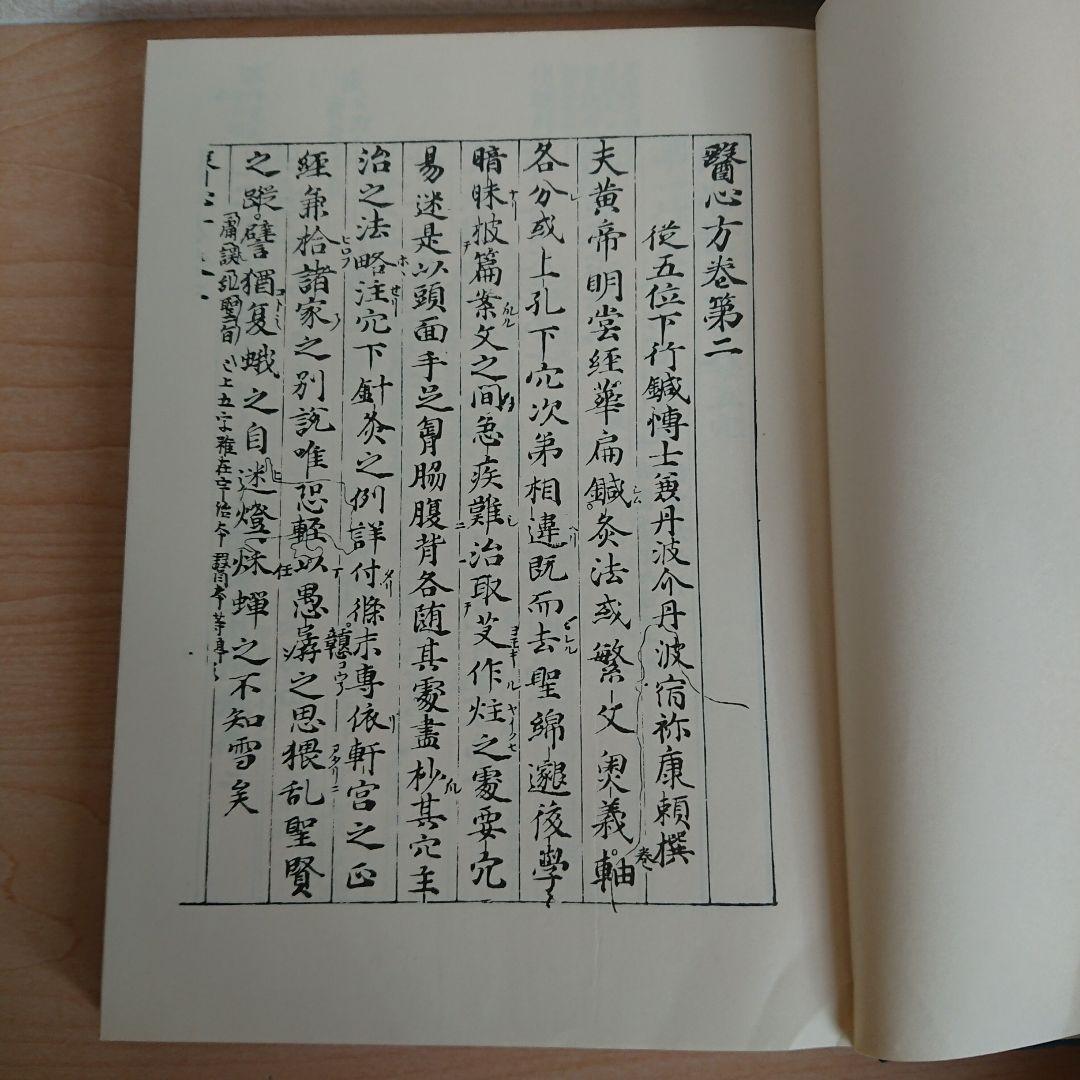 醫心方卷第二
從五位下行鍼博士兼丹波介丹波宿祢康頼撰
夫黄帝明堂經華扁鍼灸法或繁文奥義軸
卷
各分或上孔下穴次第相違既而去聖綿邈後學
暗昧披篇案文之間急疾難治取艾作炷之處要穴
易迷是以頭面手足胷腸腹背各随其處盡抄其穴主
治之法略注穴下針灸之例詳付條末專依軒宮之正
經兼拾諸家之別說唯恐輕以愚孱之思猥乱聖賢
任
之蹤譬猶夏蛾之自迷燈秋蟬之不知雪矣
已上五字雖在宇治本醫本等